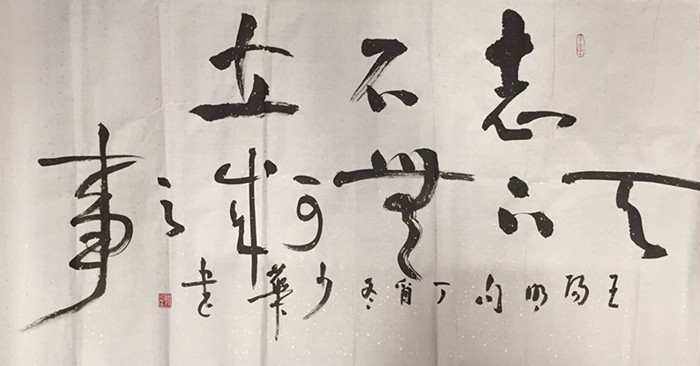 志不立
天下無可成之事
王陽明句丁酉冬少華書